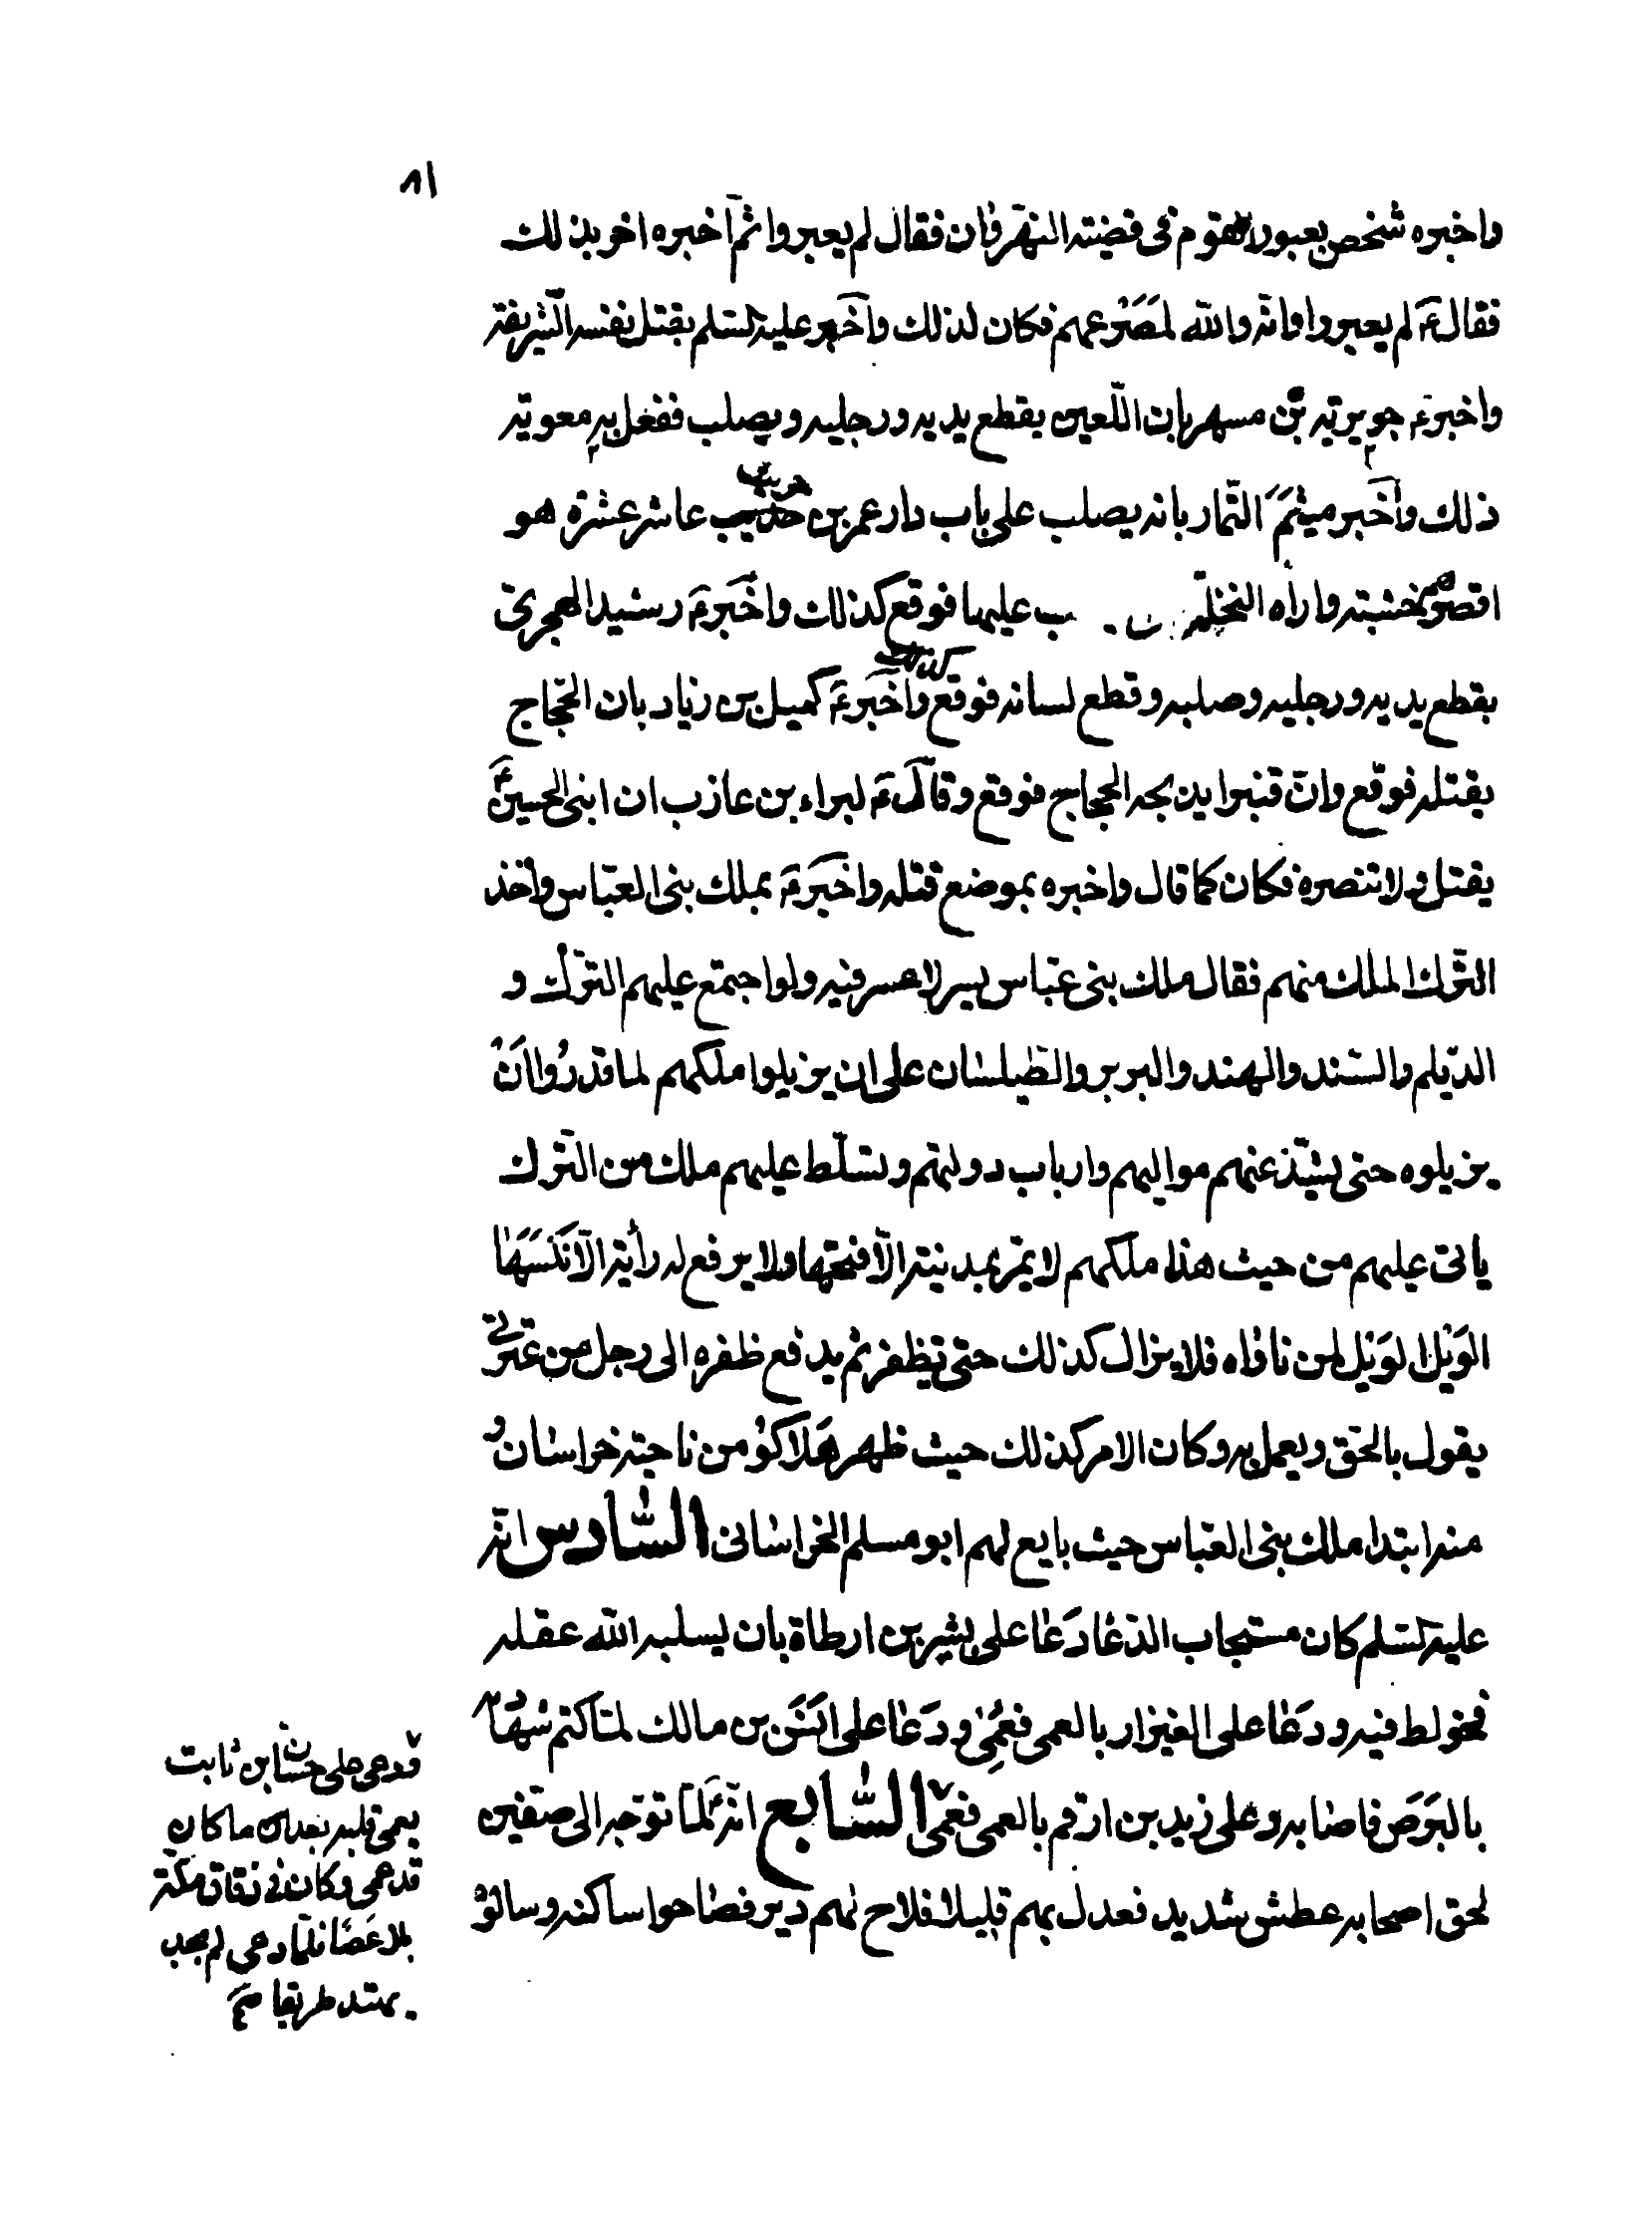 ٨١
واخبره شخص بعبور القوم فى قضيته النهروان فقال لم يعبروا ثم اخبره اخر بذلك
فقال ع لم يعبروا وانه والله لمصرعهم فكان لذلك واخبر عليه السلم بقتل نفسه الشريفة
واخبر ع جويرية بن مسهر بان اللعين يقطع يديه ورجليه ويصلب ففعل به معوية
ذلك واخبر ميثم التمار بانه يصلب على باب دار عمر بن حريث عاشر عشرة هو
اقصرهم خشبته واراه النخلة عليها فوقع كذلك واخبر ع رشيد الهجرى
بقطع يديه ورجليه وصلبه وقطع لسانه فوقع كذلك واخبر ع كميل بن زياد بان الحجاج
يقتله فوقع وان قنبرا يذبحه الحجاج فوقع وقال ع لبراء بن عازب ان ابنى الحسين ع
يقتل ولا تنصره فكان كما قال واخبره بموضع قتله واخبر ع بملك بنى العباس واخذ
الترك الملك منهم فقال ملك بنى عباس يسر لا عسر فيه ولو اجتمع عليهم الترك و
الديلم والسند والهند والبربر والطيلسان على ان يزيلوا ملكهم لما قدروا ان
يزيلوه حتى يشذ عنهم مواليهم وارباب دولتهم ويسلط عليهم ملك من الترك
ياتى عليهم من حيث هذا ملكهم لا يمر بمدينة الا فتحها ولا يرفع له راية الا نكسها
الويل الويل لمن ناواه فلا يزال كذلك حتى يظفر ثم يدفع ظفره الى رجل من عترتى
يقول بالحق ويعمل به وكان الامر كذلك حيث ظهر هلاكو من ناحية خراسان و
منه ابتدا ملك بنى العباس حيث بايع لهم ابو مسلم الخراسانى السادس انه
عليه السلم كان مستجاب الدعا دعا على بشر بن ارطاة بان يسلبه الله عقله
فخولط فيه ودعا على الغيزار بالعمى فعمى ودعا على انس بن مالك لما كتم شهادته
بالبرص فاصابه وعلى زيد بن ارقم بالعمى فعمى السابع انه ع لما توجه الى صفين
لحق اصحابه عطش شديد فعدل بهم قليلا فلاح لهم دير فصاحوا ساكنه وسالوه
ودعى على حسان ابن ثابت
يعمى قلبه بعد ما كان
قد عمى وكان فى زقاق مكة
بلا عصا فلما دعى لم يجد
يهتد طريقا صح